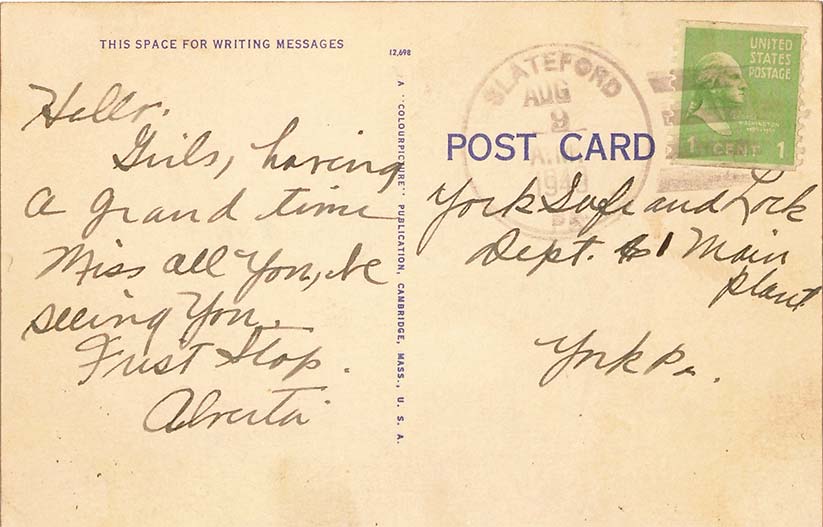 THIS SPACE FOR WRITING MESSAGES
Hello.
Girls, having
a grand time
Miss all You, be
seeing You.
Frist Stop.
Alverta
12,698
A "COLOURPICTURE" PUBLICATION, CAMBRIDGE, MASS., U. S. A.
SLATEFORD
AUG
9
A.M.
PA.
UNITED
STATES
POSTAGE
WASHINGTON
1 CENT 1
POST CARD
York Safe and Lock
Dept. 1 Main
plant
York Pa.